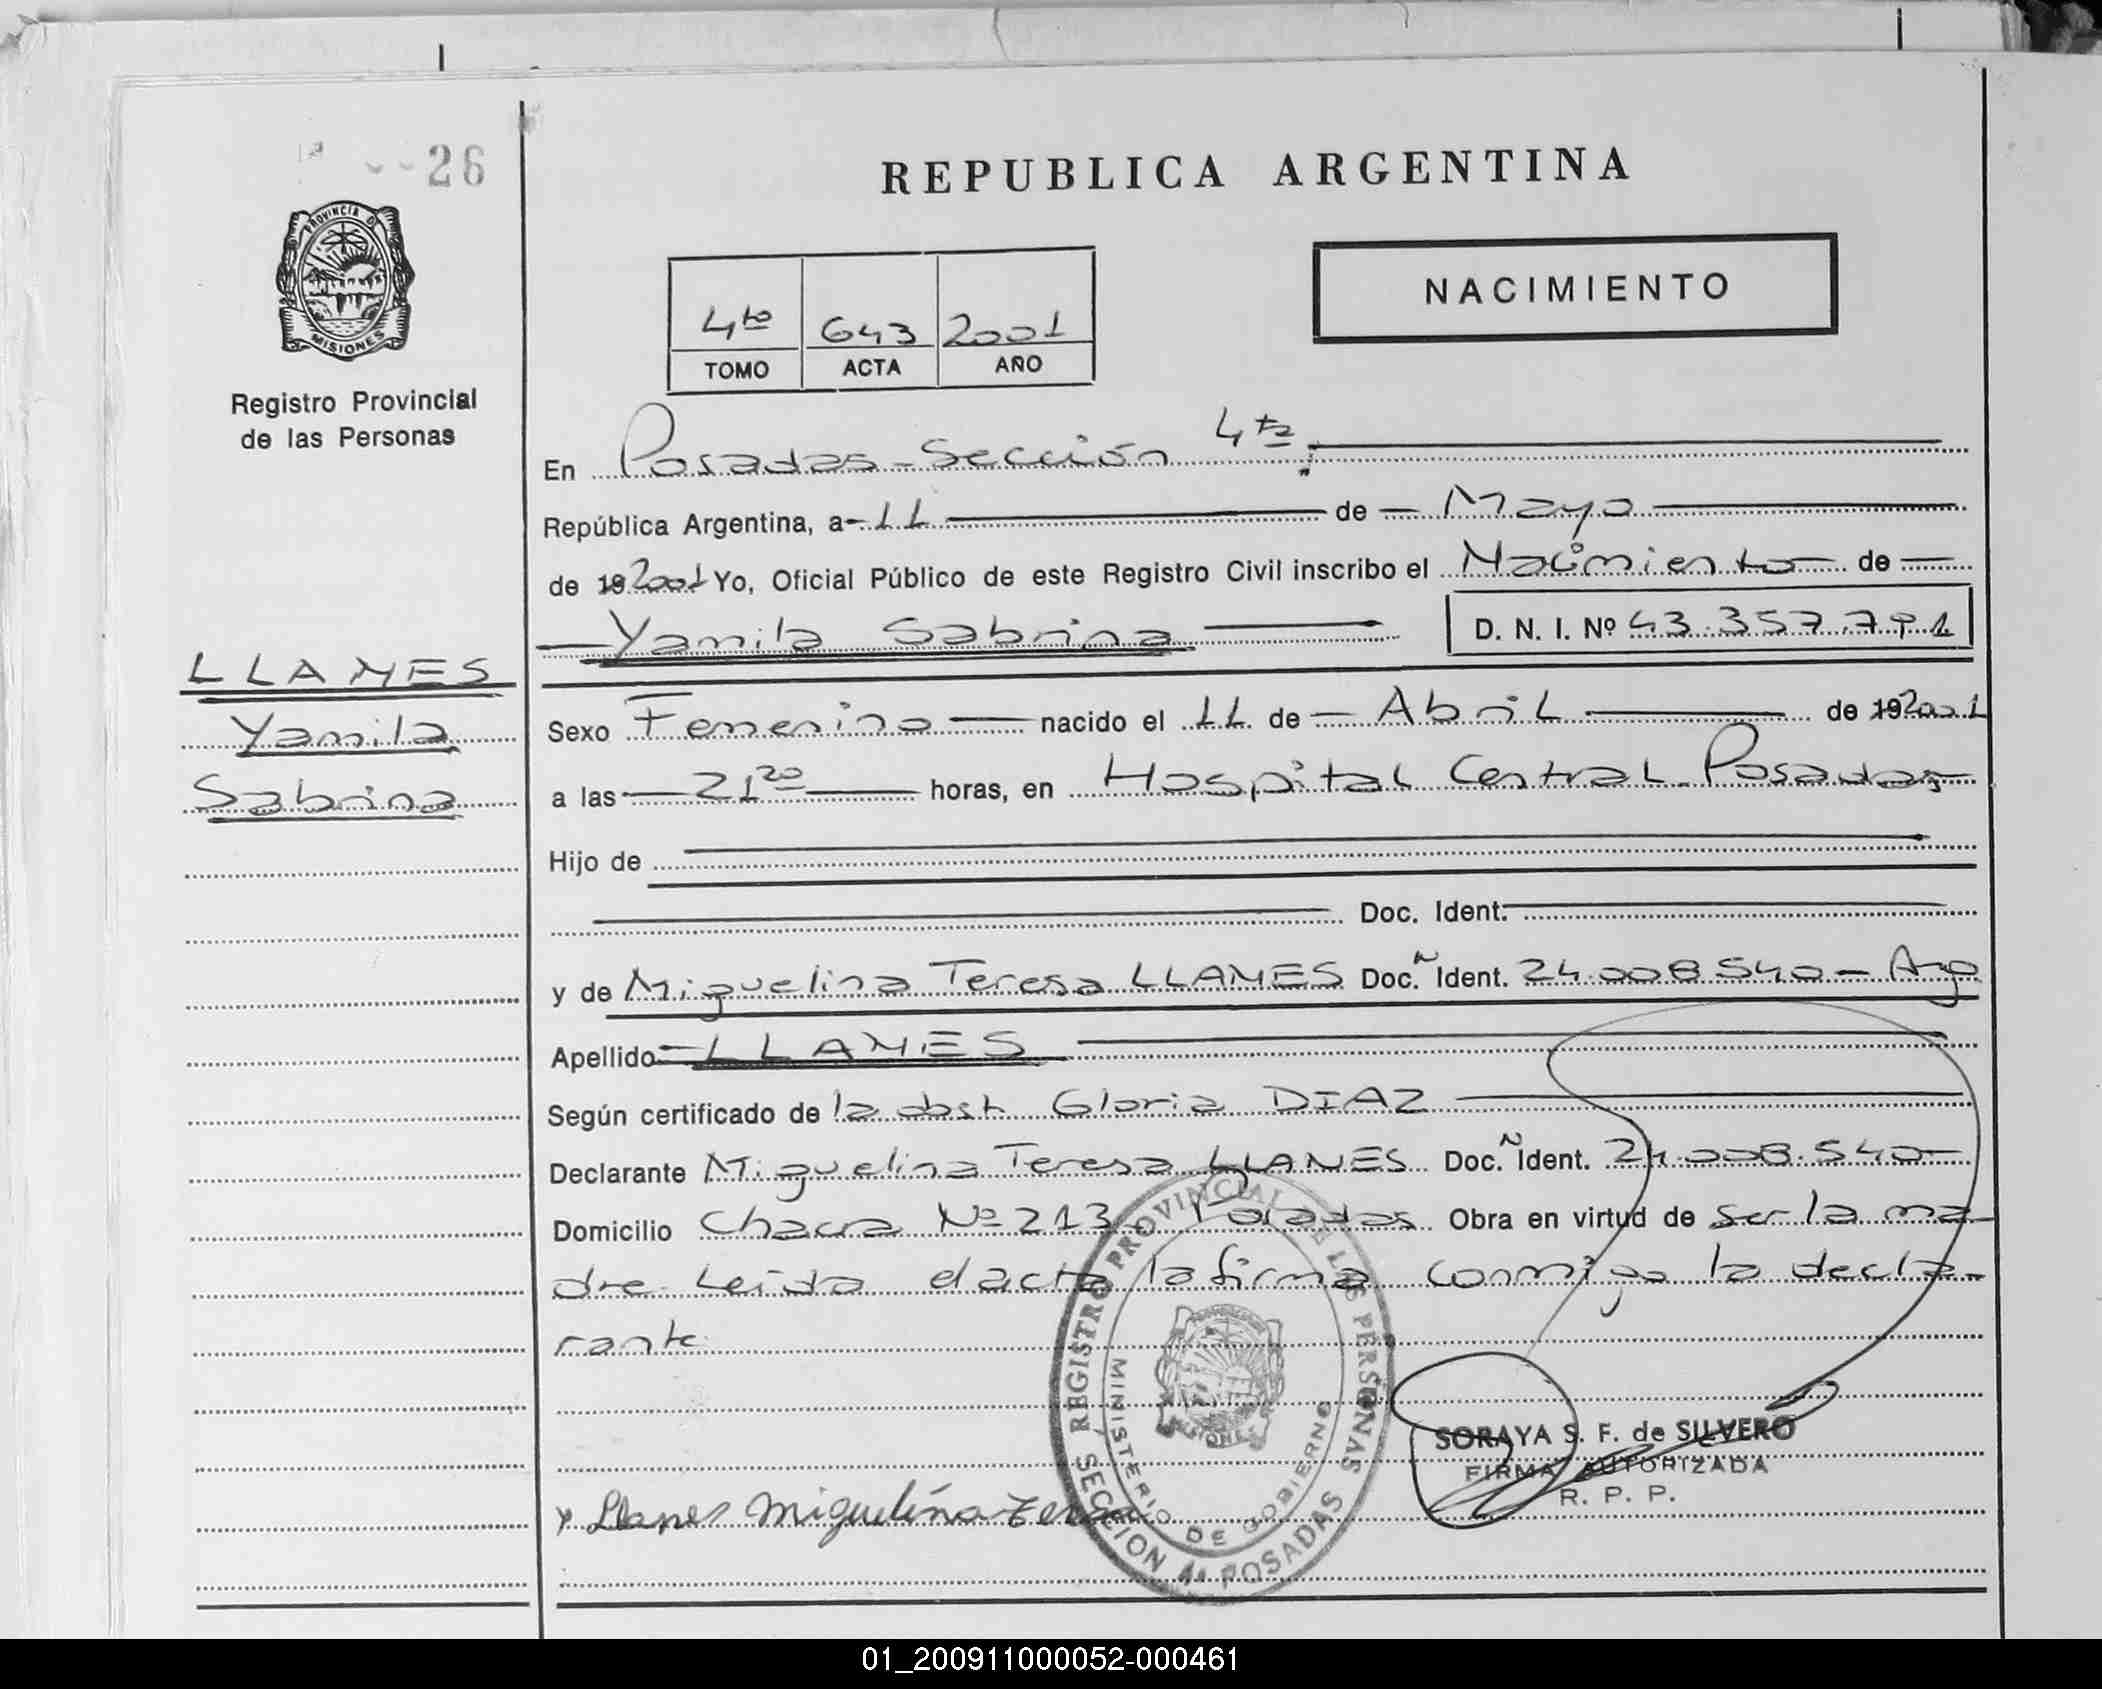 26
PROVINCIA DE
MISIONES
Registro Provincial
de las Personas
LLANES
Yamila
Sabrina
REPUBLICA ARGENTINA
NACIMIENTO
4to 643 2001
TOMO ACTA AÑO
En Posadas - Sección 4ta.
República Argentina, a 11 de Mayo
de 19 2001 Yo, Oficial Público de este Registro Civil inscribo el Nacimiento de
Yamila Sabrina D. N. I. Nº
Sexo Femenino nacido el 11 de Abril de 19 2001
a las 21 20 horas, en Hospital Central Posadas
Hijo de
Doc. Ident.
y de Miguelina Teresa LLANES Doc. N Ident. 24.008.540 - Arg
Apellido LLANES
Según certificado de la obst. Gloria DIAZ
Declarante Miguelina Teresa LLANES Doc. N Ident. 24.008.540
Domicilio Chacra Nº 213 Posadas Obra en virtud de ser la ma-
dre. Leida el acta la firma conmigo la decla-
rante.
REGISTRO PROVINCIAL DE LAS PERSONAS
MINISTERIO DE GOBIERNO
SECCION 4a POSADAS
SORAYA S. F. de SILVERO
FIRMA AUTORIZADA
R. P. P.
x Llanes Miguelina Teresa
01_200911000052-000461